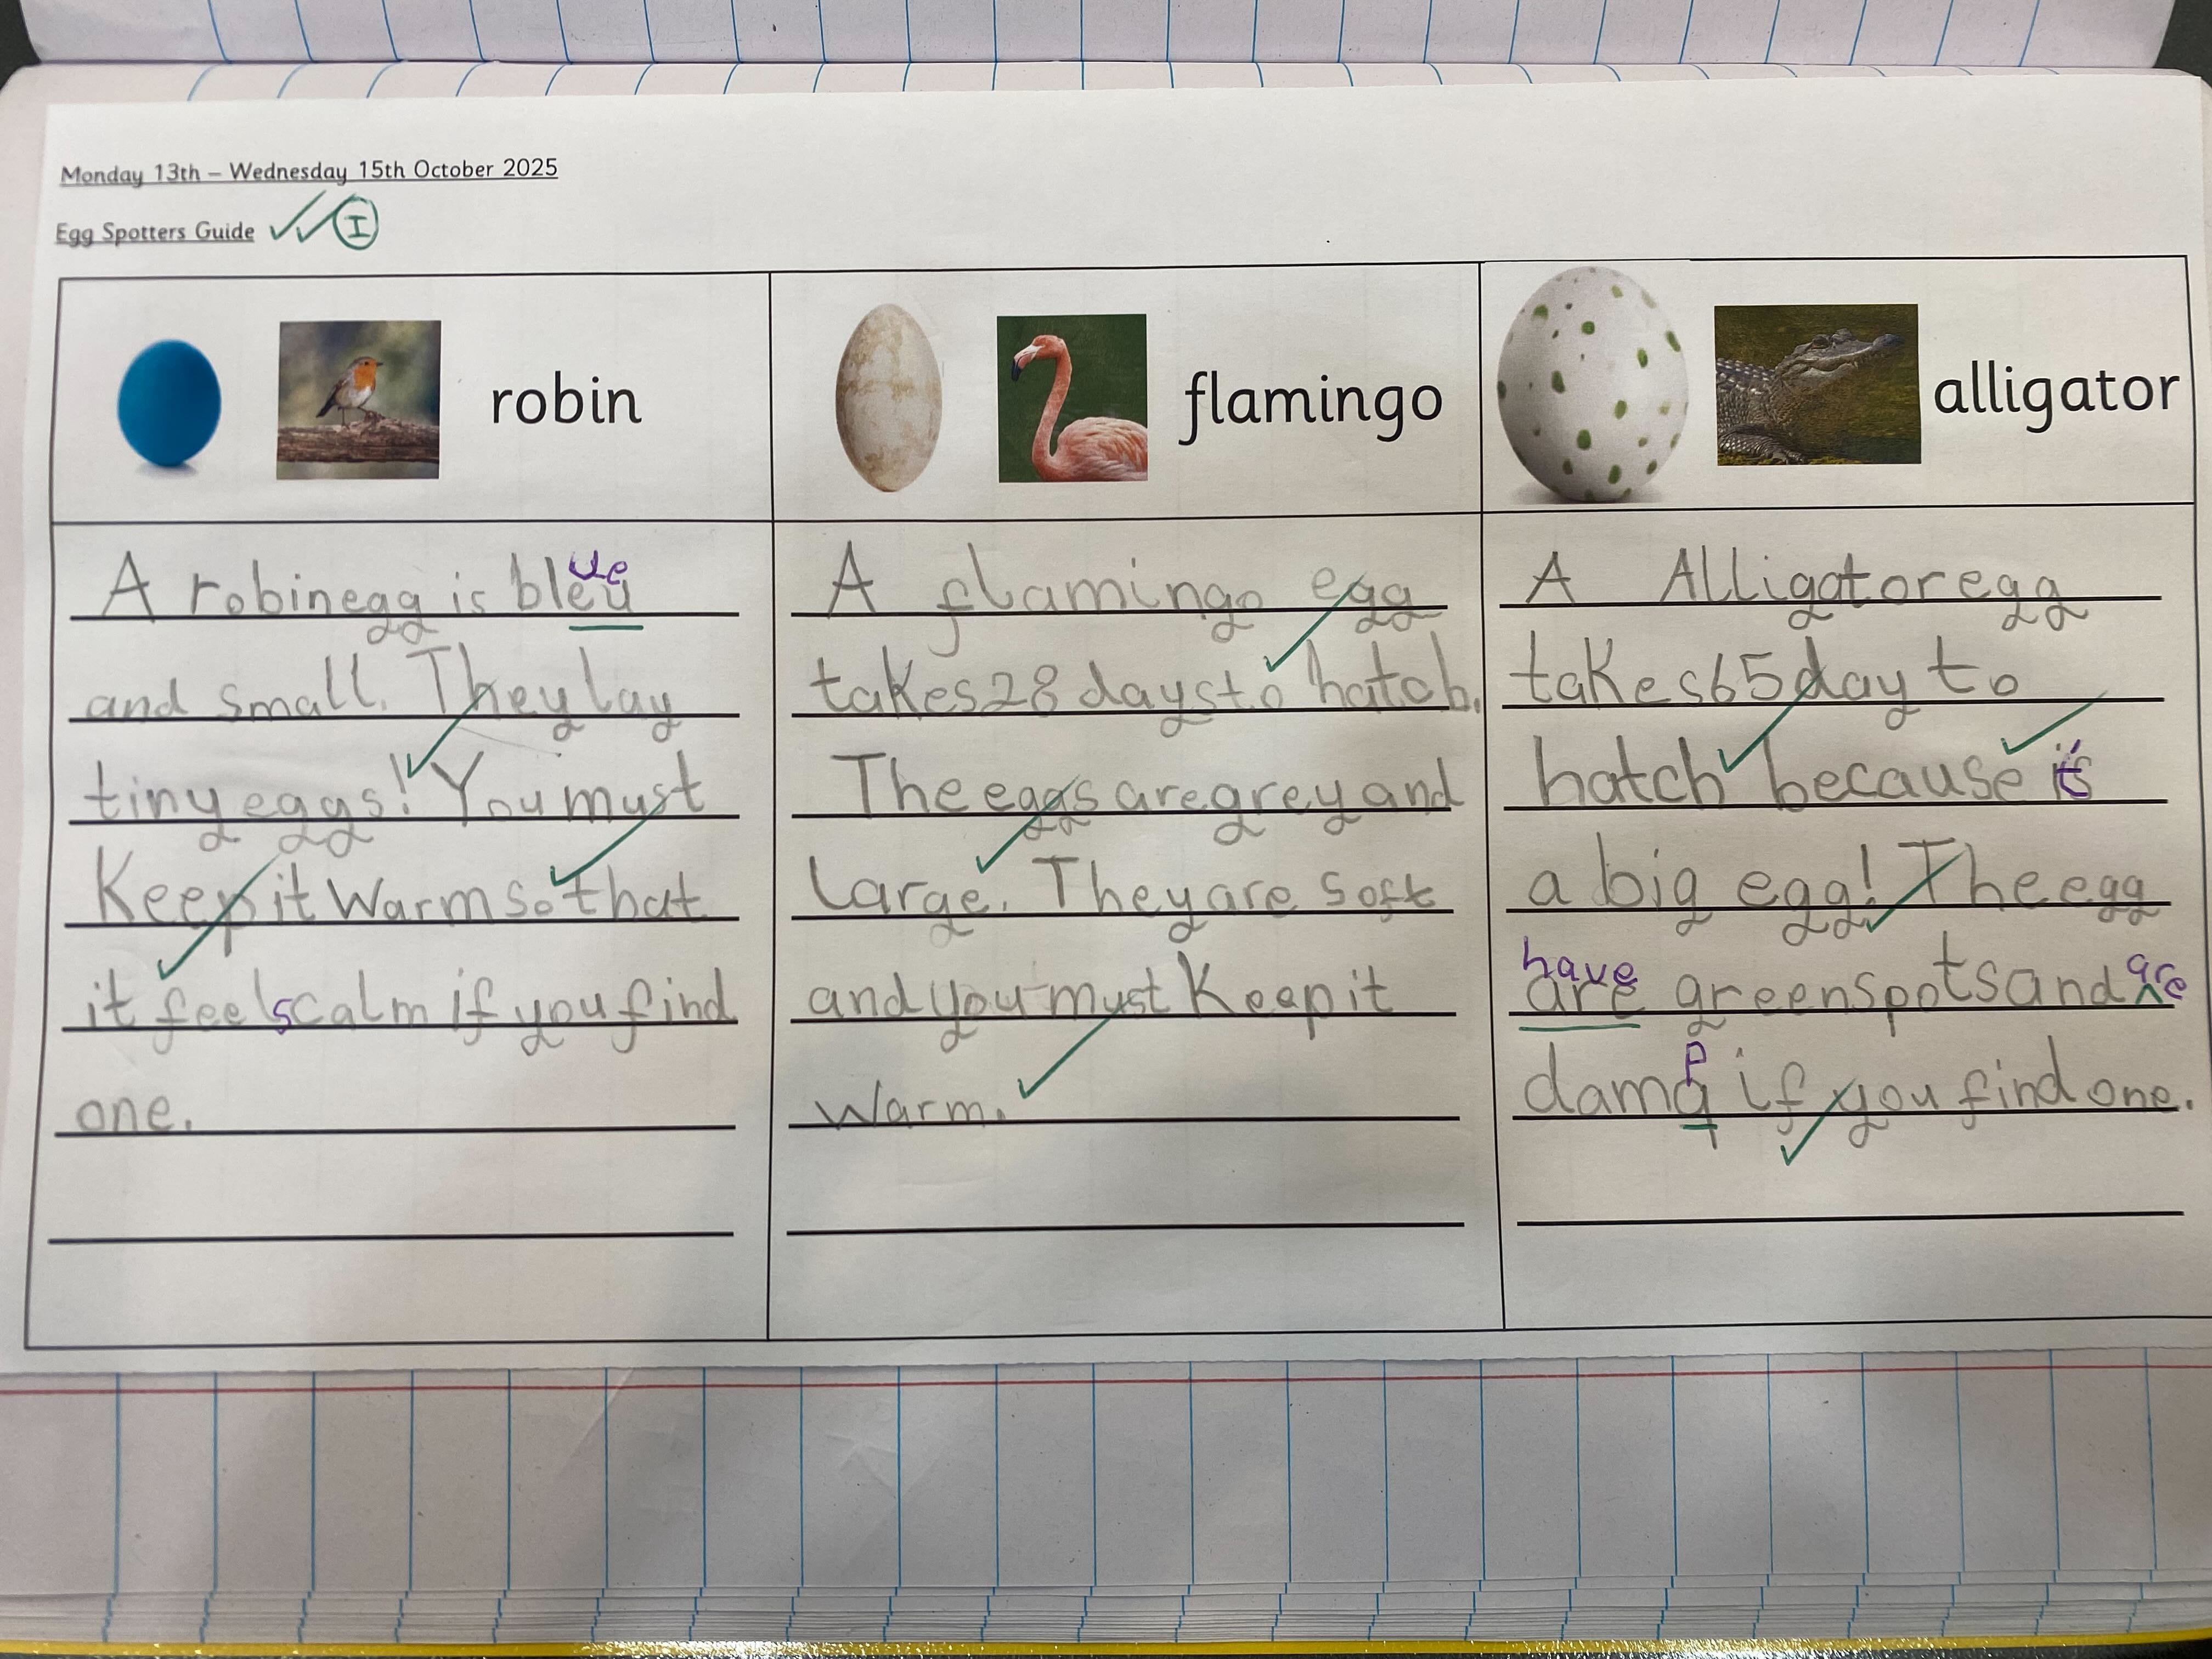 Monday 13th – Wednesday 15th October 2025
Egg Spotters Guide I
robin
A robin egg is bleu ue
and small. They lay
tiny eggs! You must
Keep it warm so that
it feels calm if you find
one.
flamingo
A flamingo egg
takes 28 days to hatch.
The eggs are grey and
large. They are soft
and you must Keep it
warm.
alligator
A Alligator egg
takes 65 day to
hatch because it's
a big egg! The egg
have
are green spots and are
p
damq if you find one.